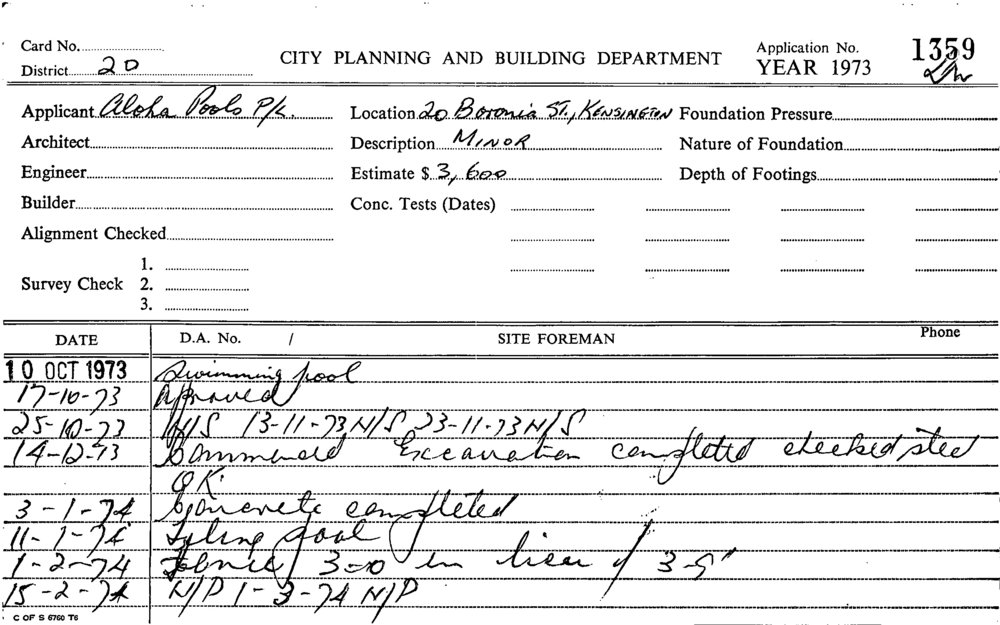 Card No.
District 20
CITY PLANNING AND BUILDING DEPARTMENT
Application No. 1359
YEAR 1973
Applicant Aloha Pools P/L.
Location 20 Boronia ST., KENSINGTON
Foundation Pressure
Architect
Description MINOR
Nature of Foundation
Engineer
Estimate $ 3,600
Depth of Footings
Builder
Conc. Tests (Dates)
Alignment Checked
Survey Check 1.
2.
3.
DATE D.A. No. / SITE FOREMAN Phone
10 OCT 1973 Swimming pool
17-10-73 Approved
25-10-73 N/S 13-11-73 N/S 23-11-73 N/S
14-12-73 Commenced Excavation completed checked steel
O.K.
3-1-74 Concrete completed
11-1-74 Tiling pool
1-2-74 Fence 3-0 in lieu of 3-9"
15-2-74 N/P 1-3-74 N/P
C OF S 6760 T6